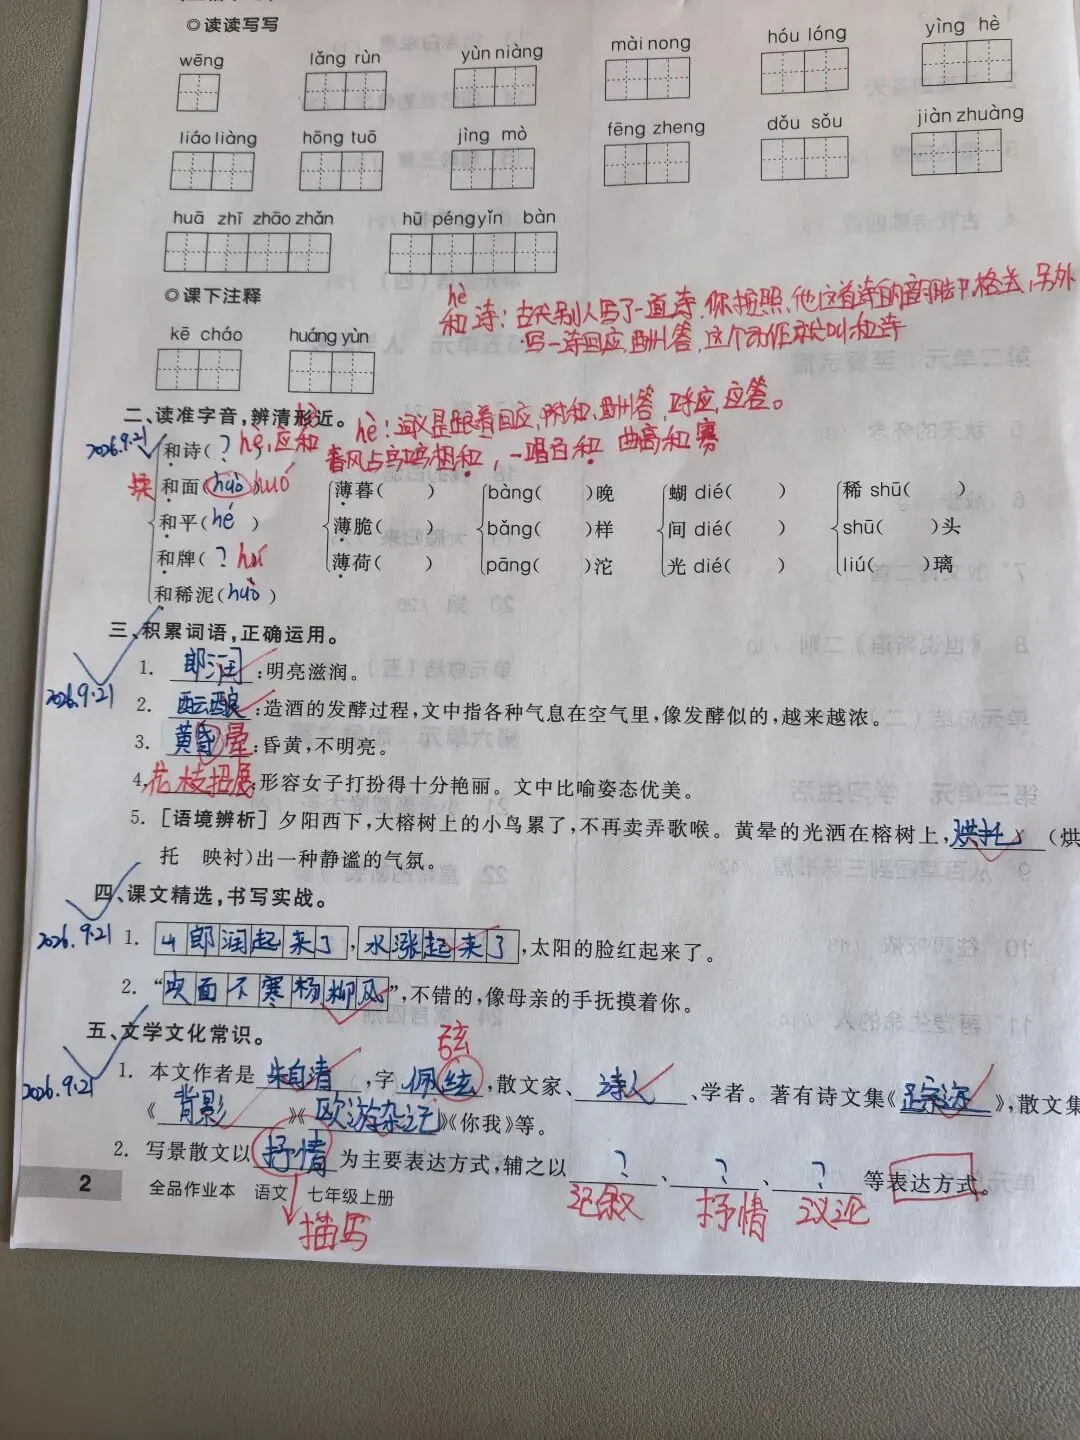 ◎读读写写
wēng lǎng rùn yùn niàng mài nong hóu lóng yìng hè
liáo liàng hōng tuō jìng mò fēng zheng dǒu sǒu jiàn zhuàng
huā zhī zhāo zhǎn hū péng yǐn bàn
◎课下注释
hè
和诗：古代别人写了一首诗，你按照他这首诗的音韵平格去，另外
写一诗回应、酬答，这个动作就叫和诗
kē cháo huáng yùn
二、读准字音，辨清形近。
hè：词义是跟着回应，附和、酬答、呼应、应答。
春风与乌鸣相和，一唱百和 曲高和寡
2026.9.21
和诗(？ ) hè，应和
块 和面(huò) huó
和平(hé )
和牌(？ ) hú
和稀泥(huò )
薄暮( )
薄脆( )
薄荷( )
bàng( )晚
bǎng( )样
pāng( )沱
蝴 dié( )
间 dié( )
光 dié( )
稀 shū( )
shū( )头
liú( )璃
三、积累词语，正确运用。
2026.9.21
1. 郎润:明亮滋润。
2. 酝酿:造酒的发酵过程，文中指各种气息在空气里，像发酵似的，越来越浓。
3. 黄昏 晕:昏黄，不明亮。
4. 花枝招展:形容女子打扮得十分艳丽。文中比喻姿态优美。
5. [语境辨析] 夕阳西下，大榕树上的小鸟累了，不再卖弄歌喉。黄晕的光洒在榕树上，烘托(烘
托 映衬)出一种静谧的气氛。
四、课文精选，书写实战。
2026.9.21
1. 山郎润起来了，水涨起来了，太阳的脸红起来了。
2. “吹面不寒杨柳风”，不错的，像母亲的手抚摸着你。
五、文学文化常识。
2026.9.21
弦
1. 本文作者是朱自清，字佩弦，散文家、诗人、学者。著有诗文集《踪迹》，散文集
《背影》《欧游杂记》《你我》等。
2. 写景散文以抒情为主要表达方式，辅之以？、？、？等表达方式。
记叙 抒情 议论
描写
2 全品作业本 语文 七年级上册